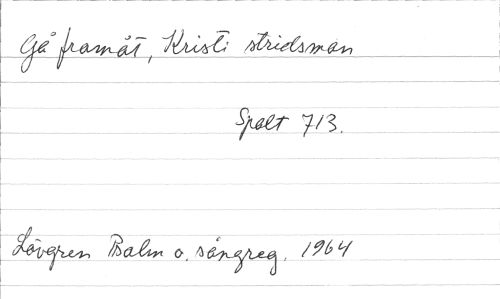 Gå framåt, Kristi stridsman
Spalt 713.
Lövgren Psalm o. sångreg. 1964